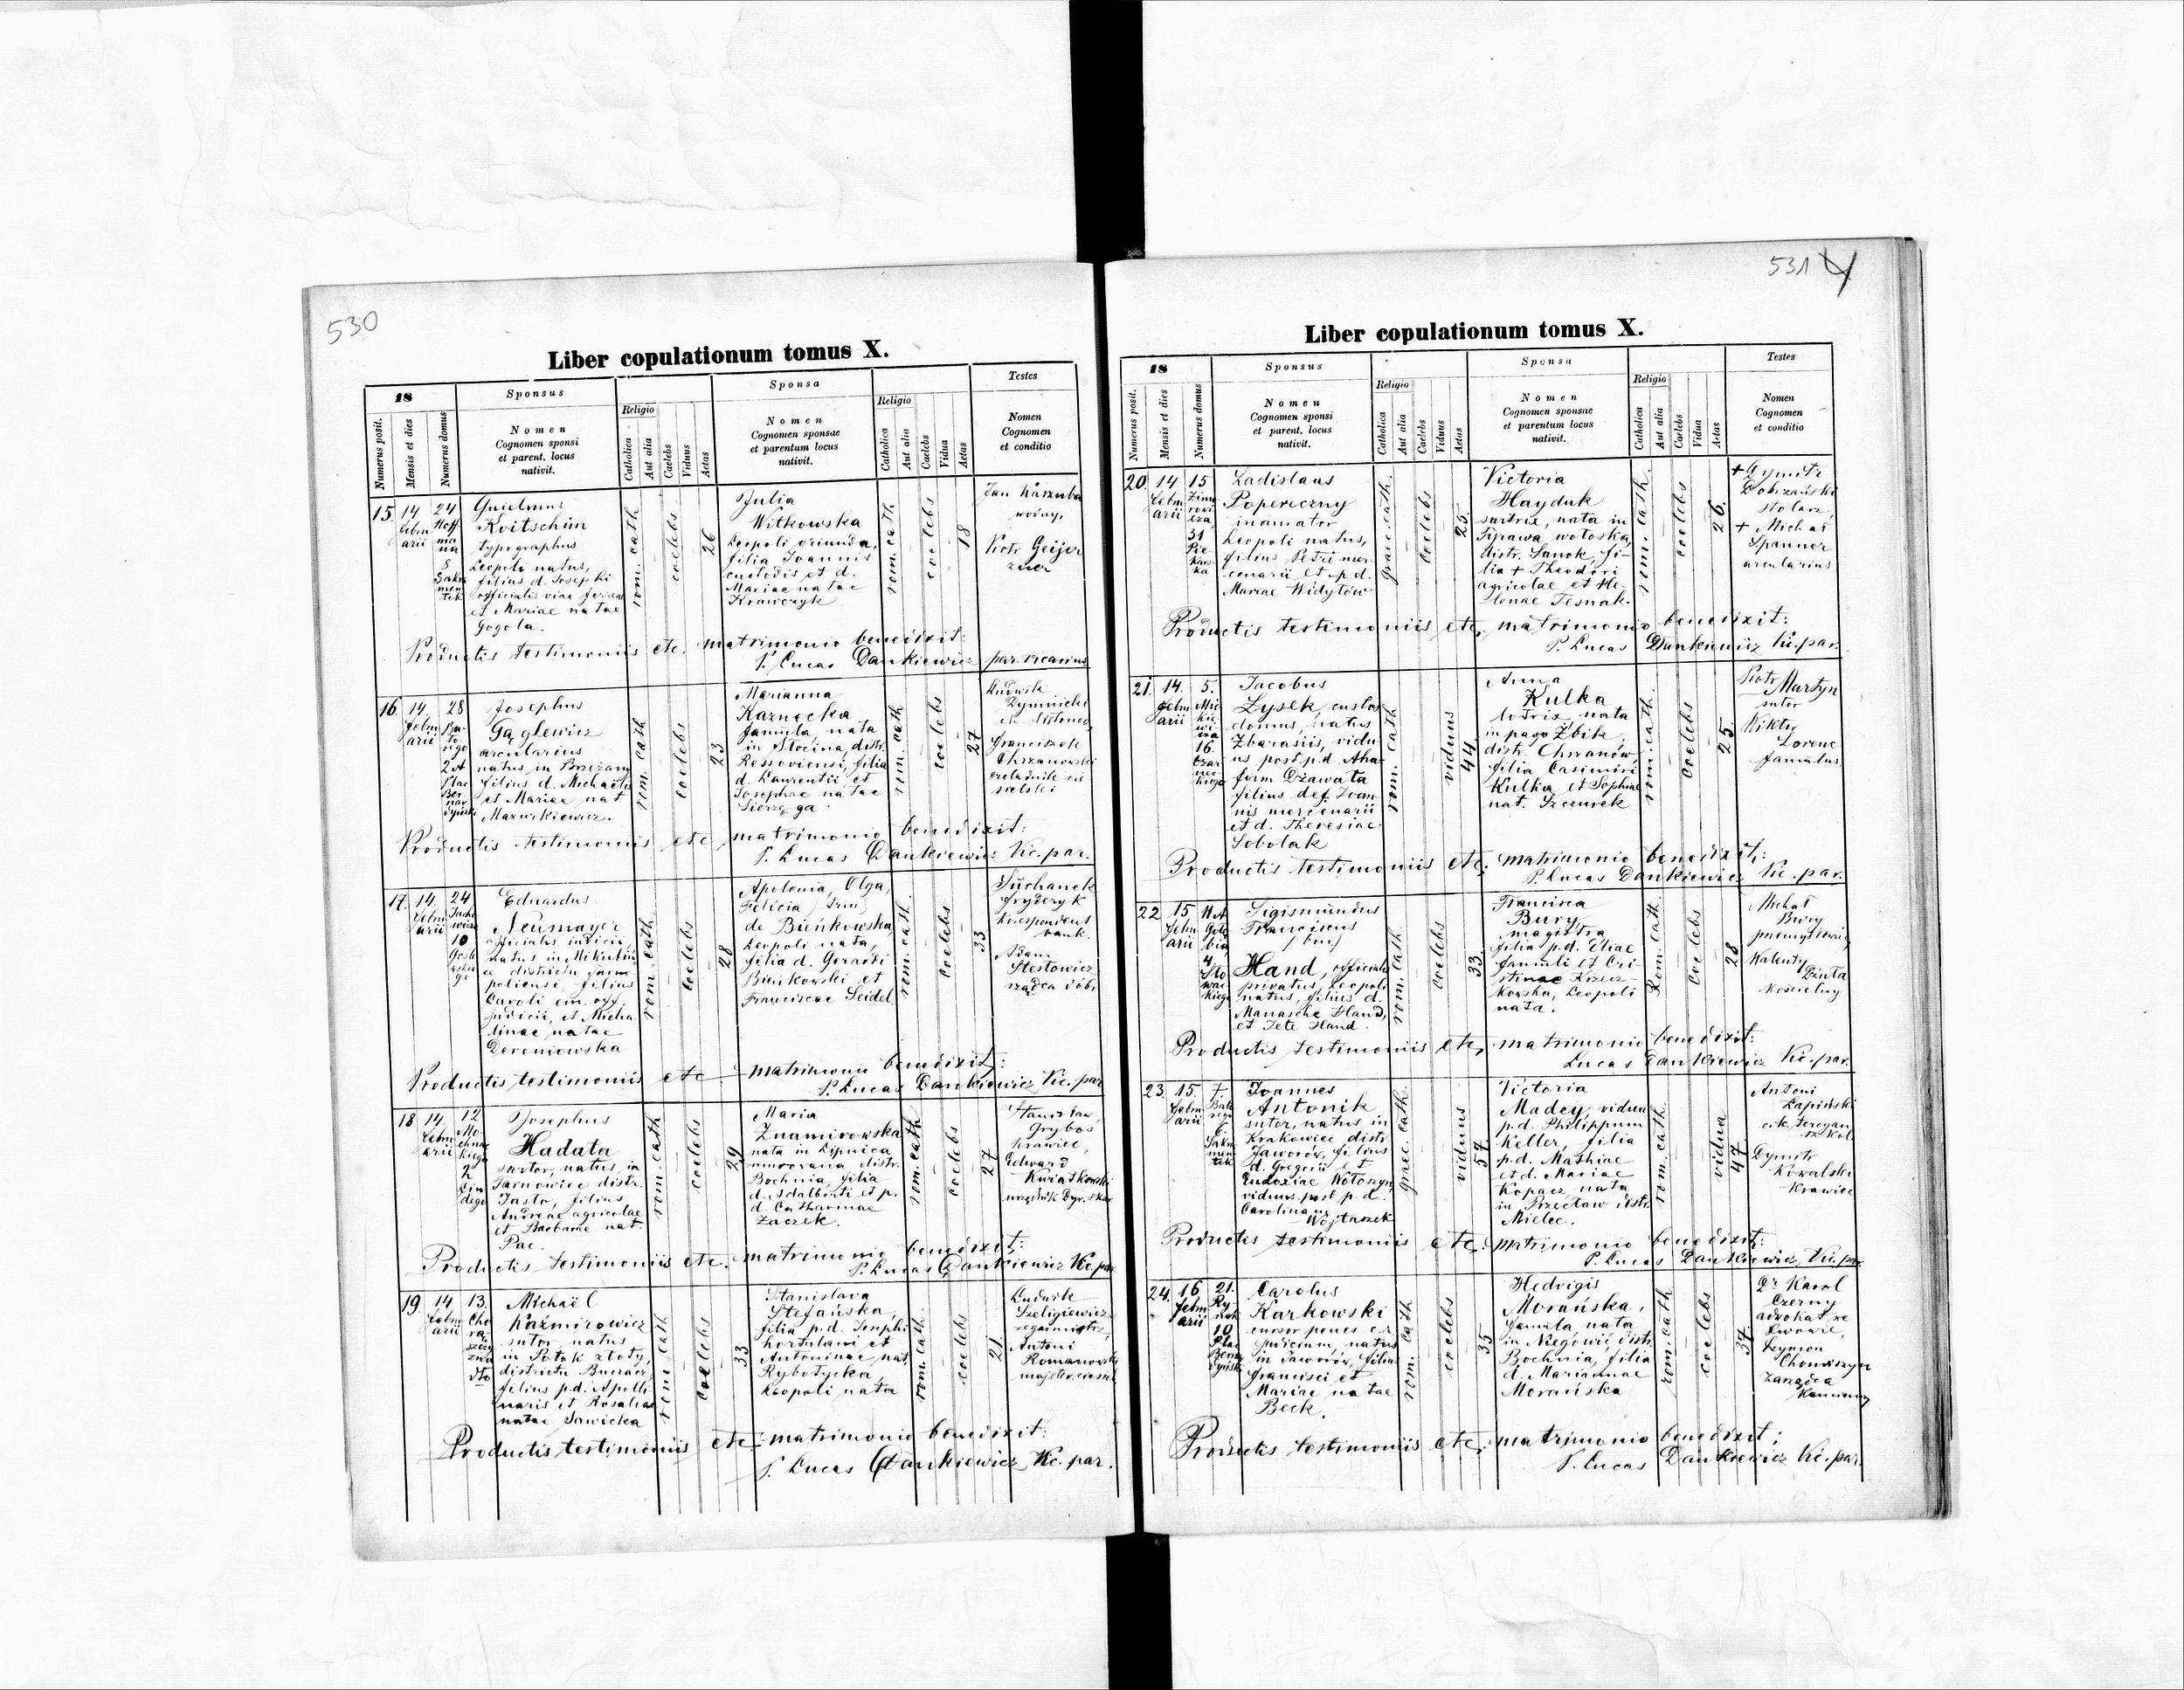 530
Liber copulationum tomus X.
18
Sponsus
Sponsa
Testes
Numerus posit.
Mensis et dies
Numerus domus
Nomen
Cognomen sponsi
et parent. locus
nativit.
Religio
Catholica
Aut alia
Caelebs
Viduus
Aetas
Nomen
Cognomen sponsae
et parentum locus
nativit.
Religio
Catholica
Aut alia
Caelebs
Vidua
Aetas
Nomen
Cognomen
et conditio
15. 14 Februarii
24 Hoffmana
8 Sakramentek
Guielmus
Kvitschim
typographus
Leopoli natus,
filius d. Josephi
officialis viae ferreae
et Mariae natae
Gogola.
rom. cath.
coelebs
26
Julia
Witkowska
Leopoli oriunda,
filia Joannis
custodis et d.
Mariae natae
Krawczyk
rom. cath.
coelebs
18
Jan Kaszuba
woźny,
Piotr Geijer
Productis testimoniis etc. matrimonio benedixit:
P. Lucas Dankiewicz par. vicarius
16. 14. Februarii
28 Batorego
2A Plac Bernardyński
Josephus
Gąglewicz
arcularius
natus in Brzeżany
filius d. Michaëlis
et Mariae nat
Mazurkiewicz.
rom. cath
coelebs
23
Marianna
Kaznecka
famula, nata
in Słocina, distr.
Ressoviensi, filia
d. Laurentii et
Josephae natae
Sierzęga.
rom. cath
coelebs
27
Ludwik
Franciszek
Chrzanowski
czeladnik
Productis testimoniis etc. matrimonio benedixit:
P. Lucas Dankiewicz Vic. par.
17. 14. Februarii
24
10
Eduardus
Neumayer
officialis iudicii,
natus in
districtu Tarnopoliensi, filius
Caroli em. off.
judicii, et Michalinae natae
Dereniowska
rom. cath
coelebs
28
Apolonia, Olga,
Felicia
de Bieńkowska,
Leopoli nata,
filia d. Gerardi
Bieńkowski et
Franciscae Seidel
rom. cath.
coelebs
33
Suchanek
Fryderyk
korespondent
bank.
Adam
Stestowicz
rządca dóbr
Productis testimoniis etc. matrimonio benedixit:
P. Lucas Dankiewicz Vic. par
18 14. Februarii
12 Mochnackiego
2
Josephus
Hadata
sartor, natus in
Tarnowiec distr.
Jasło, filius
Andreae agricolae
et Barbarae nat.
Pac.
rom. cath
coelebs
29
Maria
Znamirowska
nata in Lipnica
murowana distr.
Bochnia, filia
d. Adalberti et p.
d. Catharinae
Zaczek.
rom. cath.
coelebs
27
Stanisław
Gryboś
krawiec,
Edward
Kwiatkowski
urzędnik Dyr. skar
Productis testimoniis etc. matrimonio benedixit:
P. Lucas Dankiewicz Vic. par
19. 14 Februarii
13. Chorążczyzna
Michaël
Kaźmirowicz
sutor, natus
in Potok złoty,
districtu Buczacz,
filius p.d. Apollinaris et Rosaliae
natae Sawicka
rom. cath
coelebs
33
Stanislava
Stefańska,
filia p.d. Josephi
hortulani et
Antoninae nat.
Rybotycka,
Leopoli nata
rom. cath.
coelebs
21.
Ludwik
Szeligiewicz
zegarmistrz,
Antoni
Romanowski
Productis testimoniis etc. matrimonio benedixit:
P. Lucas Dankiewicz Vic. par.
531
Liber copulationum tomus X.
18
Sponsus
Sponsa
Testes
Numerus posit.
Mensis et dies
Numerus domus
Nomen
Cognomen sponsi
et parent. locus
nativit.
Religio
Catholica
Aut alia
Caelebs
Viduus
Aetas
Nomen
Cognomen sponsae
et parentum locus
nativit.
Religio
Catholica
Aut alia
Caelebs
Vidua
Aetas
Nomen
Cognomen
et conditio
20. 14 Februarii
15 Zimorowicza
31 Piekarska
Ladislaus
Popereczny
inamator
Leopoli natus,
filius Petri mercenarii et p.d.
Mariae Widytów
graec. cath.
coelebs
25.
Victoria
Hayduk
sartrix, nata in
Tyrawa wołoska,
distr. Sanok, filia + Theodori
agricolae et Helenae Tesnak.
rom. cath.
coelebs
26.
+ Dymitr
Dobrzański
stolarz,
+ Michał
Spanner
arcularius
Productis testimoniis etc. matrimonio benedixit:
P. Lucas Dankiewicz Vic. par.
21. 14. Februarii
5. Mickiewicza
16. Czarneckiego
Jacobus
Łysek, custos
domus, natus
Zbarasiis, viduus post p.d. Aha-
fiam Dzawata
filius def. Joannis mercenarii
et d. Theresiae
Sobolak
rom. cath
viduus
44.
Anna
Kulka
lotrix, nata
in pago Żbik,
distr. Chrzanów,
filia Casimiri
Kulka et Sophiae
nat. Szczurek
rom. cath.
coelebs
25.
Piotr Martyn
sutor
Wiktor
Lorenc
famulus
Productis testimoniis etc. matrimonio benedixit:
P. Lucas Dankiewicz Vic. par.
22. 15 Februarii
11A Gołębia
4 Słowackiego
Sigismundus
Franciscus
(bin.)
Hand, officialis
privatus, Leopoli
natus, filius d.
Manasche Hand,
et Jete Hand.
rom. cath
coelebs
33.
Francisca
Bury
magistra
filia p.d. Eliae
famuli et Cristinae Krzeczkowska, Leopoli
nata.
Rom. cath.
coelebs
28
Michał
Bury
przemysłowiec,
Walenty
Dziuta
kościelny
Productis testimoniis etc. matrimonio benedixit:
Lucas Dankiewicz Vic. par.
23. 15. Februarii
7. Batorego
6 Sakramentek
Joannes
Antonik
sutor, natus in
Krakowiec distr.
Jaworów, filius
d. Gregorii et
Eudoxiae Wołoszyn,
viduus post p.d.
Carolinam
Wojtaszek
graec. cath.
viduus
57.
Victoria
Madey, vidua
p.d. Philippum
Keller, filia
p.d. Mathiae
et d. Mariae
Kopacz, nata
in Przecław distr.
Mielec.
rom. cath.
vidua
47
Antoni
Łapiński
Dymitr
Kowalski
krawiec
Productis testimoniis etc. matrimonio benedixit:
P. Lucas Dankiewicz Vic. par.
24. 16 Februarii
21. Rynek
10 Plac Bernardyński
Carolus
Karkowski
cursor penes c.r.
judicium, natus
in Jaworów, filius
Francisci et
Mariae natae
Beck.
rom. cath
coelebs
35
Hedvigis
Morańska,
famula nata
in Niegowić distr.
Bochnia, filia
d. Mariannae
Morańska
rom. cath
coelebs
37
Dr Karol
Czerny
adwokat we
Lwowie,
Szymon
Chomiszyn
zarządca
kamienicy
Productis testimoniis etc. matrimonio benedixit:
P. Lucas Dankiewicz Vic. par.